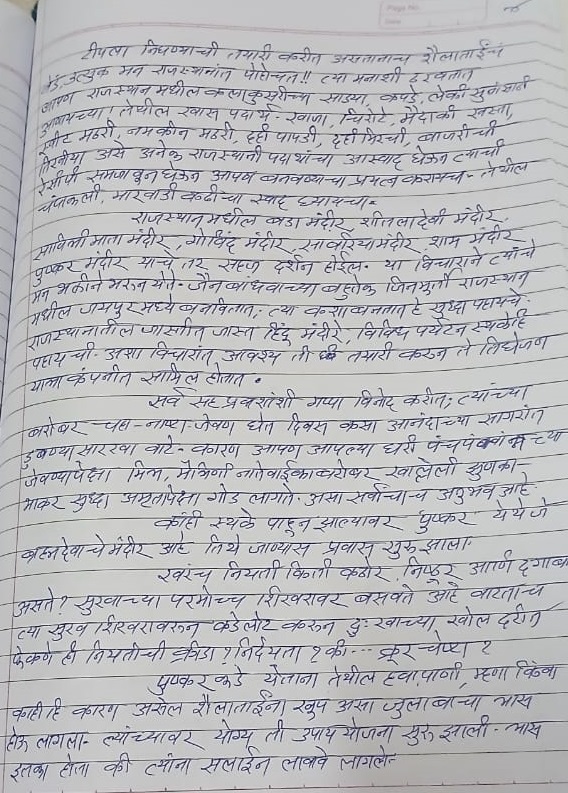 ट्रीपला निघण्याची तयारी करीत असतानाच शैलाताईंचं
वेडं, उत्सुक मन राजस्थानांत पोहोचतं!! त्या मनाशी ठरवतात
आपण राजस्थान मधील कलाकुसरीच्या साड्या, कपडे, लेकी सुनांसाठी
आणायच्या। तेथील खास पदार्थ- खाजा, घिरोटे, मैदाकी खस्ता,
स्वीट मठरी, नमकीन मठरी, दही पापडी, दही मिरची, बाजरीची
असे अनेक राजस्थानी पदार्थांचा आस्वाद घेऊन त्याची
रेसीपी समजावून घेऊन आपण बनवण्याचा प्रयत्न करायचा- तेथील
चंपाकली, मारवाडी कढीचा स्वाद घ्यायचा-
राजस्थान मधील बडा मंदीर, शीतलादेवी मंदीर,
सावित्री माता मंदीर, गोविंद मंदीर, सावरिया मंदीर शाम मंदीर
पुष्कर मंदीर यांचे तर सहज दर्शन होईल- या विचाराने त्यांचे
मन भक्तीने भरून येते- जैन बांधवाच्या बहुतेक जिनमुर्ती राजस्थान
मधील जयपुरमध्ये बनवितात, त्या कशा बनतात हे सुद्धा पहायचे-
राजस्थानातील जास्तीत जास्त हिंदू मंदीरे, विविध पर्यटन स्थळेहि
पहायची- अशा विचारांत आवश्य ती तयारी करून ते तिघेजण
यात्रा कंपनीत सामिल होतात.
सर्व सह प्रवाशांशी गप्पा विनोद करीत; त्यांच्या
बरोबर चहा-नाष्टा- जेवण घेत दिवस कसा आनंदाच्या सागरांत
डुंबण्या सारखा वाटे- कारण आपण आपल्या घरी पंचपक्वांनाच्या
जेवण्यापेक्षा मित्र, मैत्रिणी नातेवाईकाबरोबर खाल्लेली झुणका-
भाकर सुद्धा अमृतापेक्षा गोड लागते- असा सर्वांचाच अनुभव आहे-
कांही स्थळे पाहून झाल्यावर पुष्कर येथे जे
ब्रह्मदेवाचे मंदीर आहे तिथे जाण्यास प्रवास सुरू झाला-
खरंच नियती किती कठोर, निष्ठूर आणि दगाबाज
असते? सुखाच्या परमोच्च शिखरावर बसवते आहे वाटतांच
त्या सुख शिखरावरून कडेलोट करून दुःखाच्या खोल दरीत
फेकणे ही नियतीची क्रीडा? निर्दयता? की... क्रूर चेष्टा?
पुष्कर कडे येताना तेथील हवा पाणी, म्हणा किंवा
कांही हि कारण असेल शैलाताईंना खूप असा जुलाबाचा त्रास
होऊ लागला- त्यांच्यावर योग्य ती उपाय योजना सुरू झाली- त्रास
इतका होता की त्यांना सलाईन लावावे लागले-